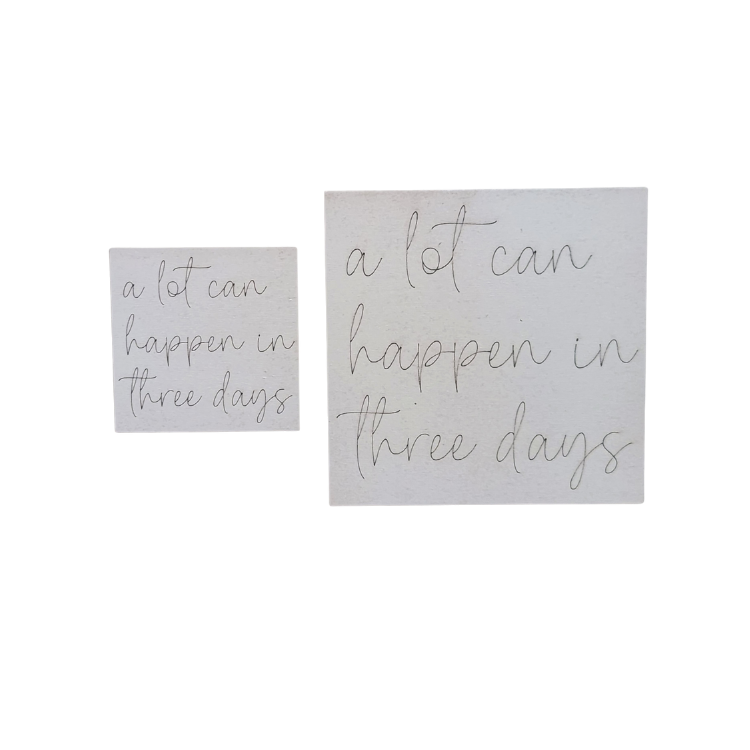 a lot can
happen in
three days
a lot can
happen in
three days